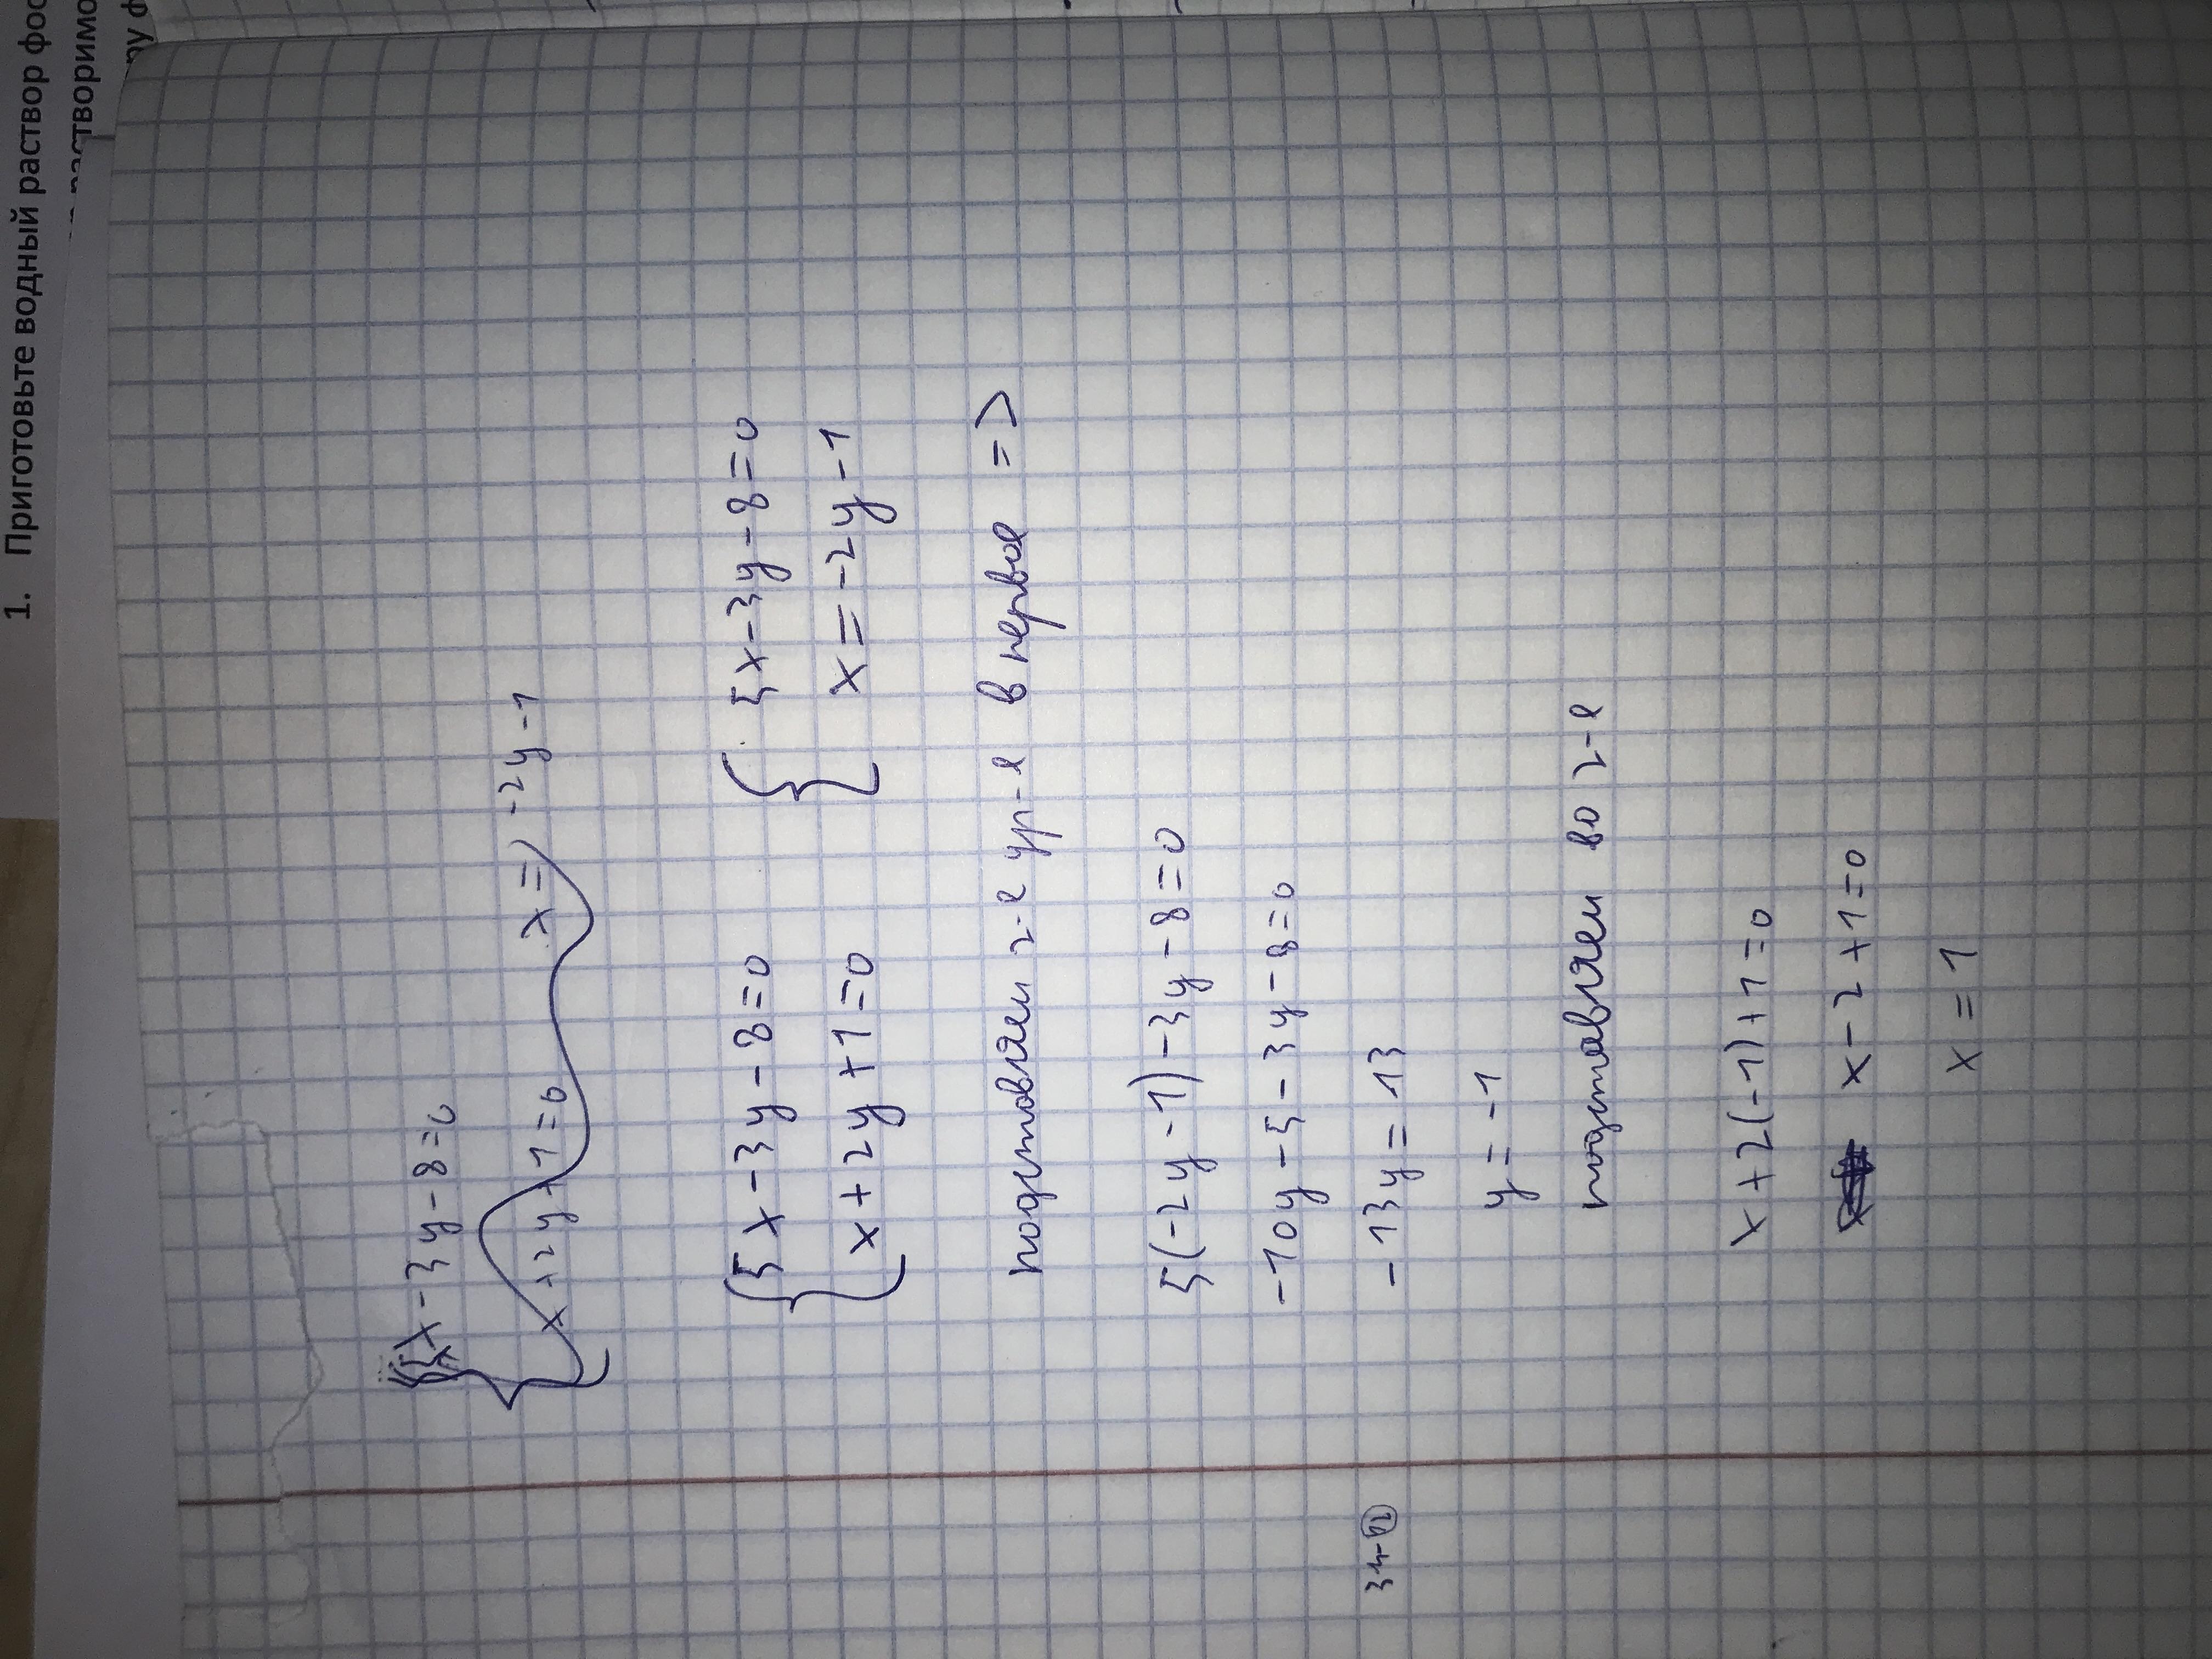 1. Приготовьте водный раствор фос
растворимо
ру ф
5x-3y-8=0
x+2y+1=0 x= -2y-1
{5x-3y-8=0 { 5x-3y-8=0
{x+2y+1=0 { x=-2y-1
подставляем 2-е ур-е в первое =>
5(-2y-1)-3y-8=0
-10y-5-3y-8=0
-13y=13
y=-1
подставляем во 2-е
x+2(-1)+1=0
x-2+1=0
x=1